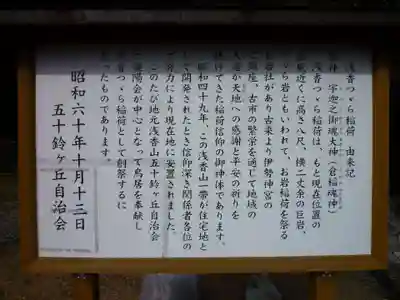 浅香つゞら稲荷 由来記
神 宇迦之御魂大神(倉稲魂神)
浅香つゞら稲荷は、もと現在位置の
近くに高さ八尺、横二丈余の巨岩、
ゞら岩ともいわれて、お岩稲荷を祭る
社があり古来より伊勢神宮の
座、古市の繁栄を通じて地域の
が天地への感謝と平安の祈りを
げてきた稲荷信仰の御神体であります。
昭和四十九年、この浅香山一帯が住宅地と
て開発されたとき信仰深き関係者各位の
力により現在地に安置されました。
のたび地元浅香山五十鈴ヶ丘自治会
陽会が中心となって鳥居を奉献し
香つゞら稲荷として創祭するに
ったものであります。
昭和六十年十月十三日
五十鈴ヶ丘自治会